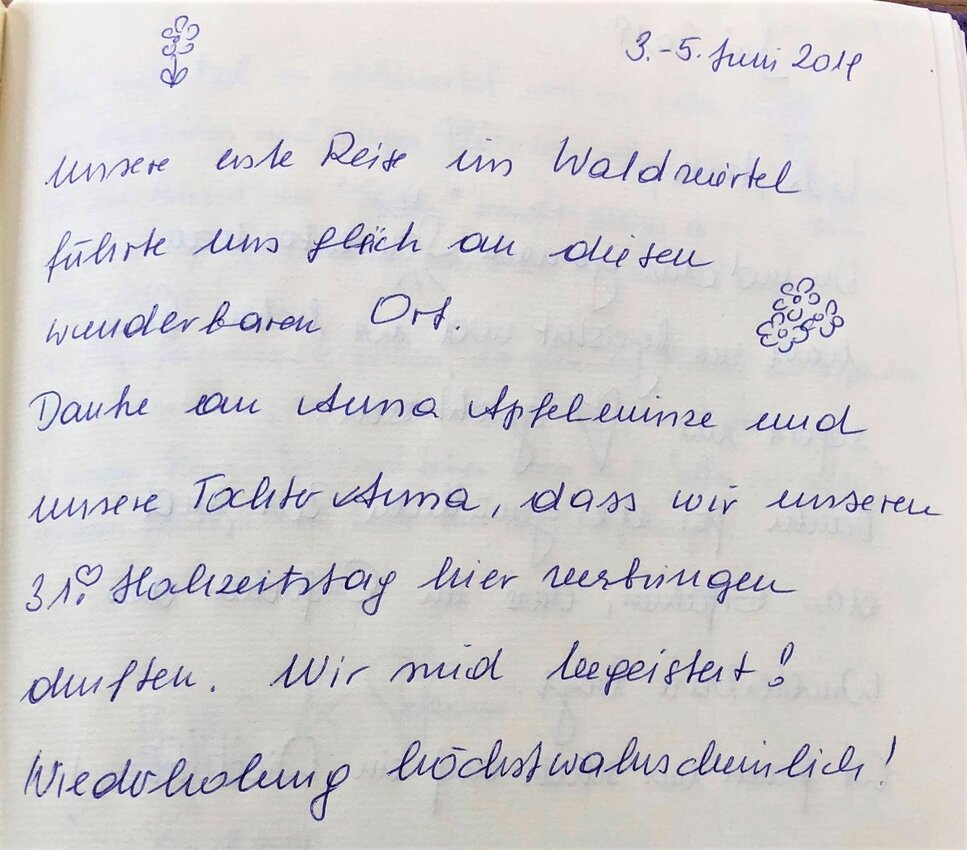 3.-5. Juni 2019
Unsere erste Reise ins Waldviertel
führte uns gleich an diesen
wunderbaren Ort.
Danke an Anna Apfelminze und
unsere Tochter Anna, dass wir unseren
31. Hochzeitstag hier verbringen
durften. Wir sind begeistert!
Wiederholung höchstwahrscheinlich!